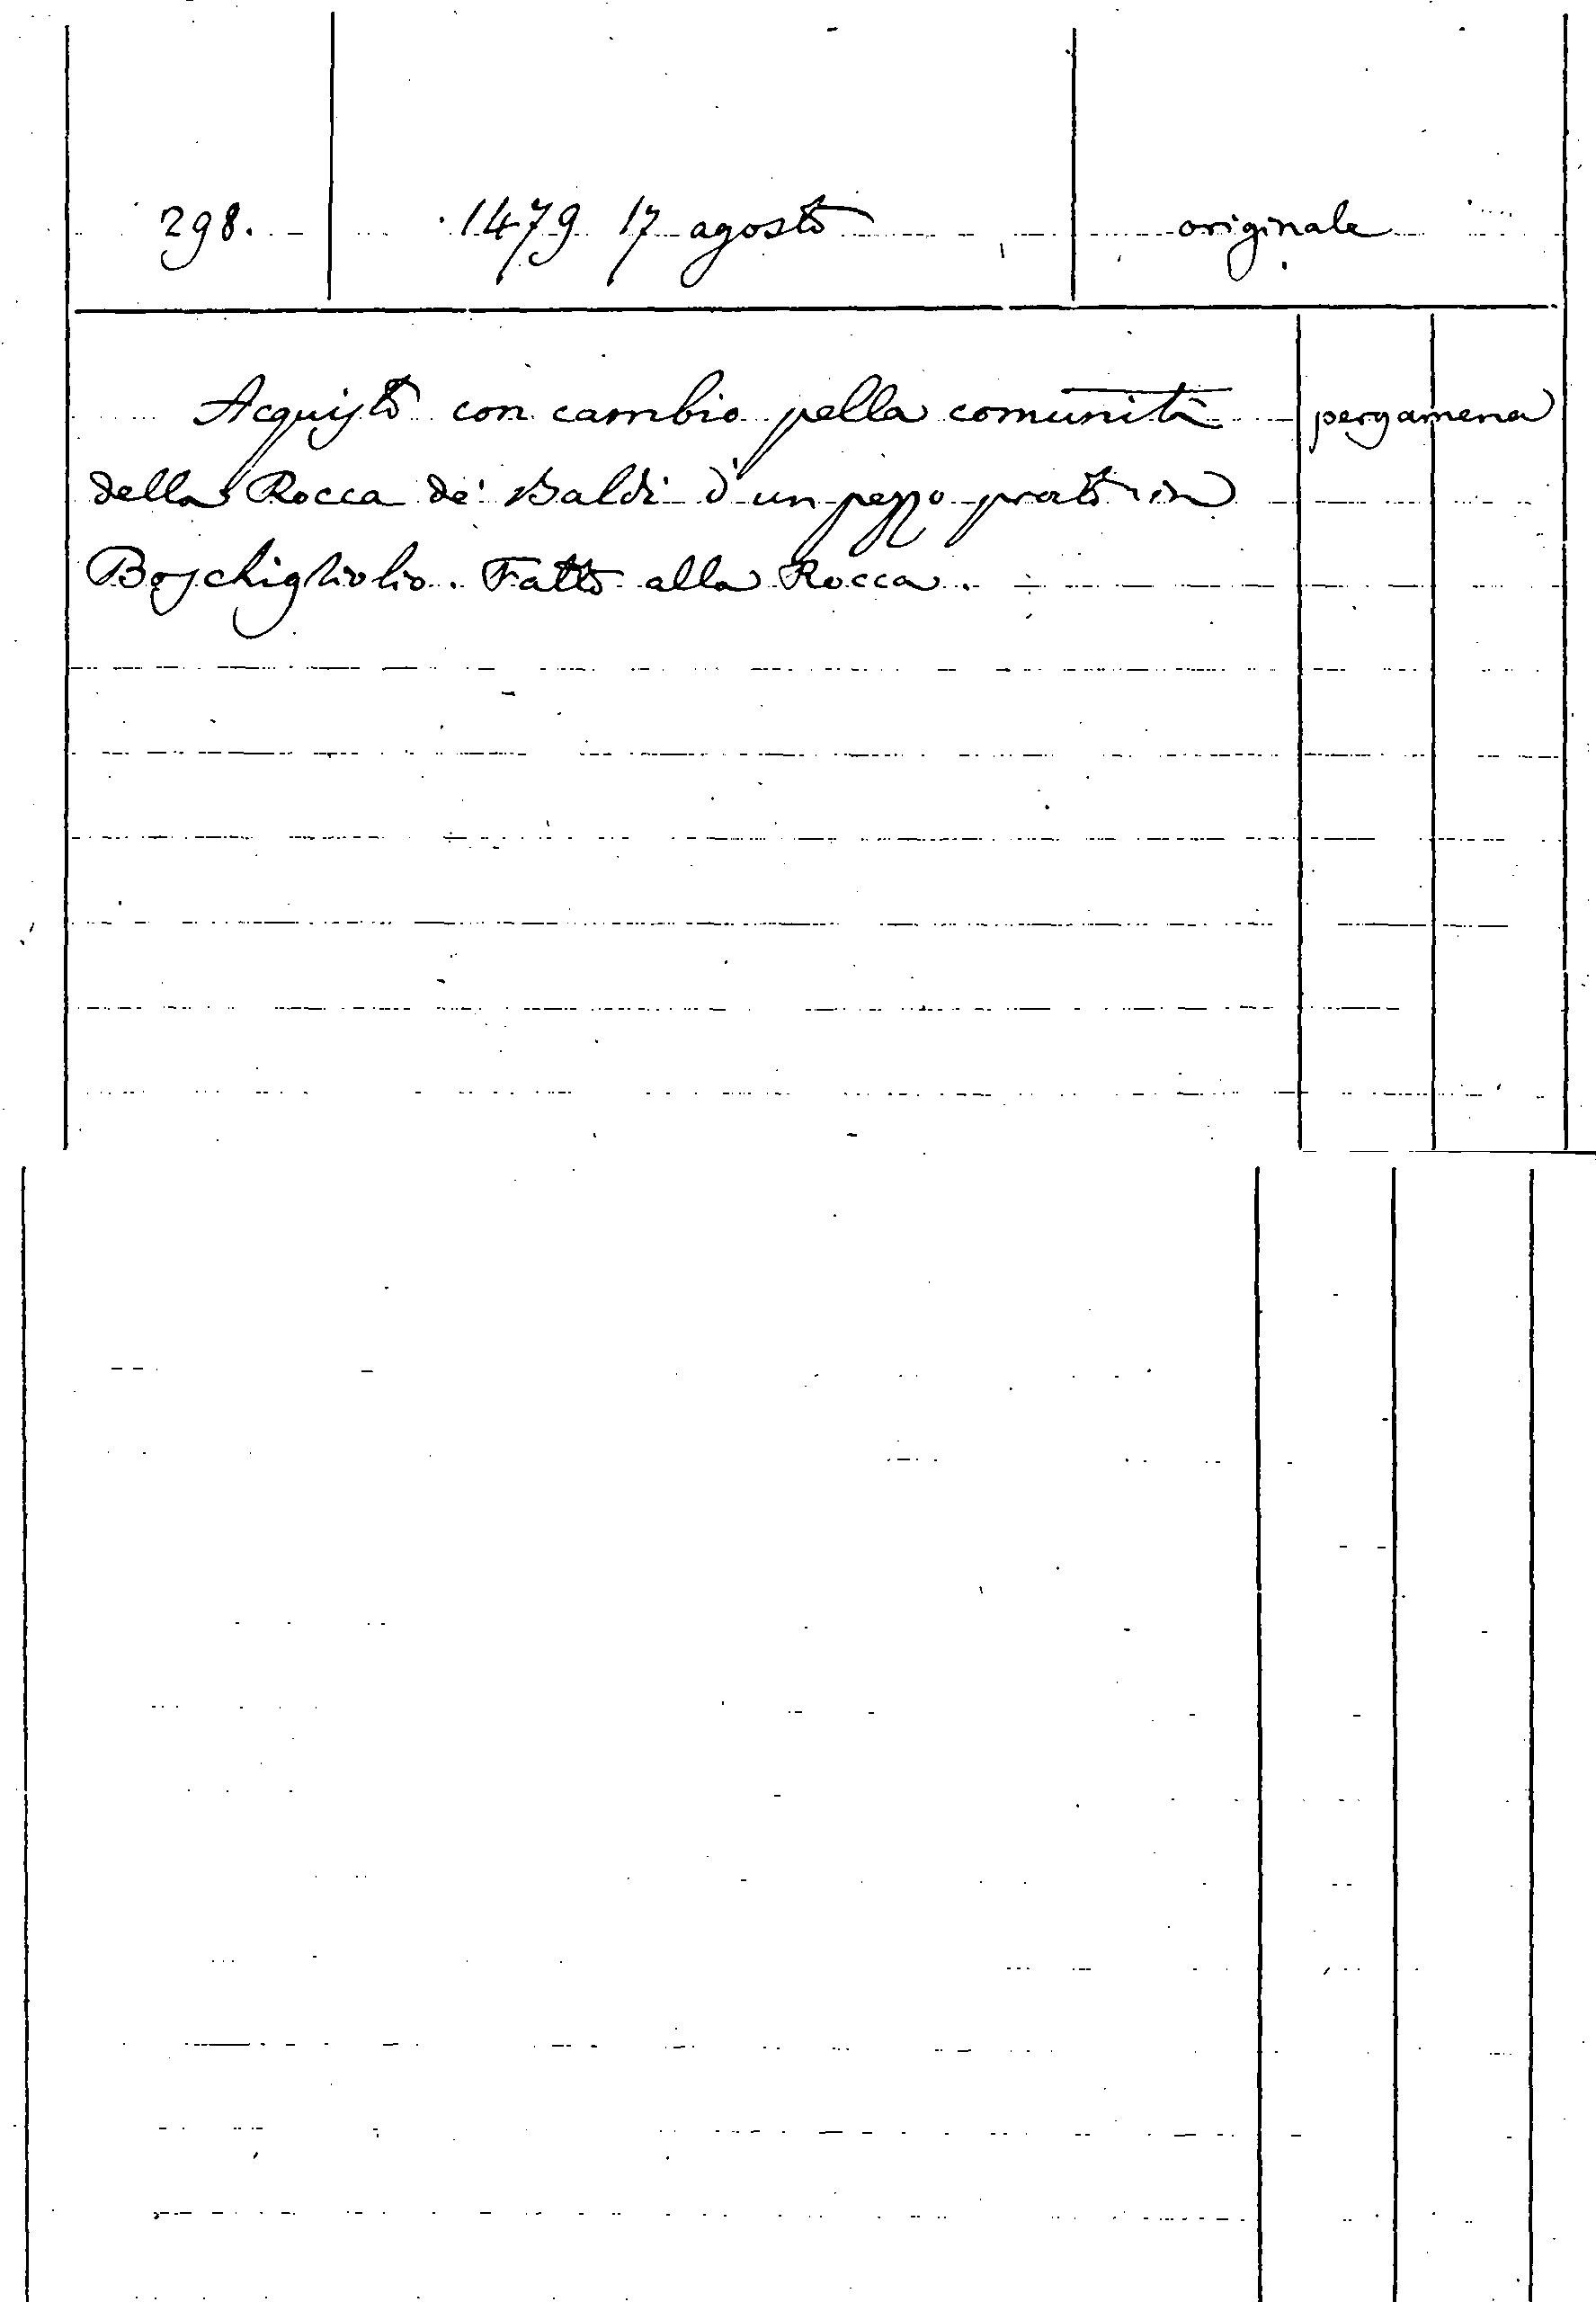 298. 1479 17 agosto originale
Acquisto con cambio pella comunità pergamena
della Rocca de' Baldi d'un pezzo prato in
Boschigliolio. Fatto alla Rocca.